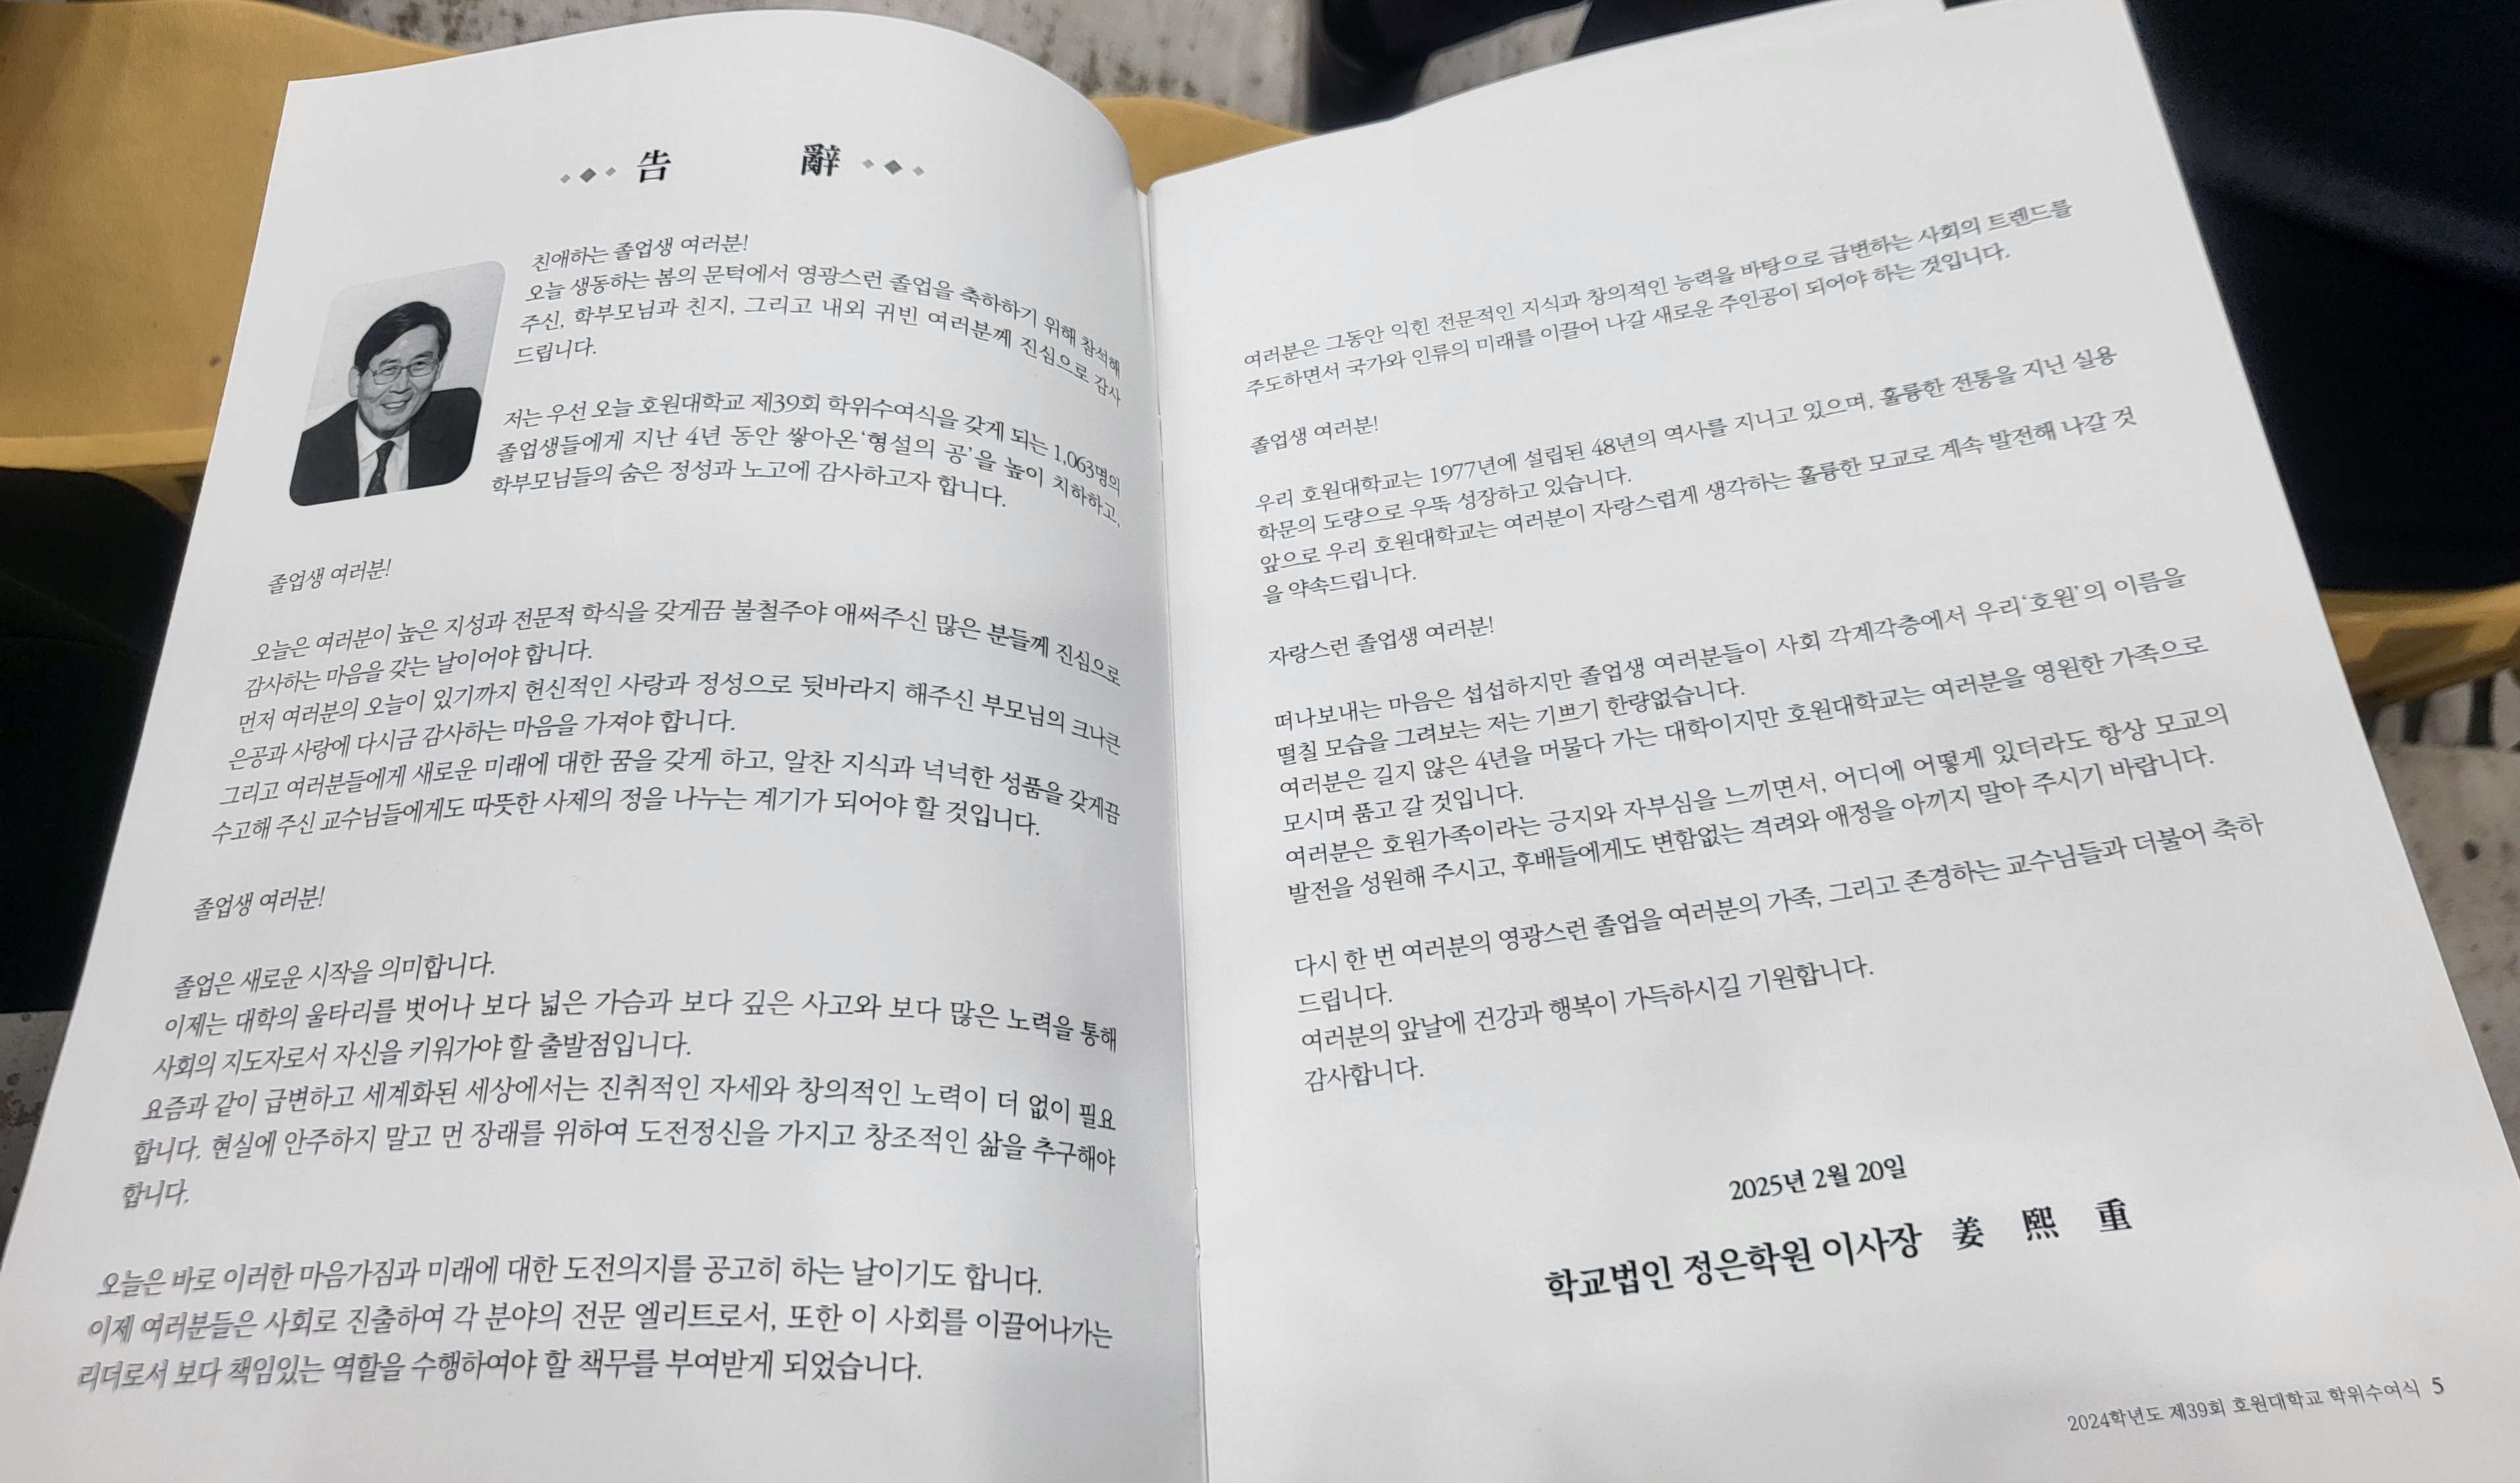 告 辭
친애하는 졸업생 여러분!
오늘 생동하는 봄의 문턱에서 영광스런 졸업을 축하하기 위해 참석해
주신, 학부모님과 친지, 그리고 내외 귀빈 여러분께 진심으로 감사
드립니다.
저는 우선 오늘 호원대학교 제39회 학위수여식을 갖게 되는 1,063명의
졸업생들에게 지난 4년 동안 쌓아온 ‘형설의 공’을 높이 치하하고,
학부모님들의 숨은 정성과 노고에 감사하고자 합니다.
졸업생 여러분!
오늘은 여러분이 높은 지성과 전문적 학식을 갖게끔 불철주야 애써주신 많은 분들께 진심으로
감사하는 마음을 갖는 날이어야 합니다.
먼저 여러분의 오늘이 있기까지 헌신적인 사랑과 정성으로 뒷바라지 해주신 부모님의 크나큰
은공과 사랑에 다시금 감사하는 마음을 가져야 합니다.
그리고 여러분들에게 새로운 미래에 대한 꿈을 갖게 하고, 알찬 지식과 넉넉한 성품을 갖게끔
수고해 주신 교수님들에게도 따뜻한 사제의 정을 나누는 계기가 되어야 할 것입니다.
졸업생 여러분!
졸업은 새로운 시작을 의미합니다.
이제는 대학의 울타리를 벗어나 보다 넓은 가슴과 보다 깊은 사고와 보다 많은 노력을 통해
사회의 지도자로서 자신을 키워가야 할 출발점입니다.
요즘과 같이 급변하고 세계화된 세상에서는 진취적인 자세와 창의적인 노력이 더 없이 필요
합니다. 현실에 안주하지 말고 먼 장래를 위하여 도전정신을 가지고 창조적인 삶을 추구해야
합니다.
오늘은 바로 이러한 마음가짐과 미래에 대한 도전의지를 공고히 하는 날이기도 합니다.
이제 여러분들은 사회로 진출하여 각 분야의 전문 엘리트로서, 또한 이 사회를 이끌어나가는
리더로서 보다 책임있는 역할을 수행하여야 할 책무를 부여받게 되었습니다.
여러분은 그동안 익힌 전문적인 지식과 창의적인 능력을 바탕으로 급변하는 사회의 트렌드를
주도하면서 국가와 인류의 미래를 이끌어 나갈 새로운 주인공이 되어야 하는 것입니다.
졸업생 여러분!
우리 호원대학교는 1977년에 설립된 48년의 역사를 지니고 있으며, 훌륭한 전통을 지닌 실용
학문의 도량으로 우뚝 성장하고 있습니다.
앞으로 우리 호원대학교는 여러분이 자랑스럽게 생각하는 훌륭한 모교로 계속 발전해 나갈 것
을 약속드립니다.
자랑스런 졸업생 여러분!
떠나보내는 마음은 섭섭하지만 졸업생 여러분들이 사회 각계각층에서 우리 ‘호원’의 이름을
떨칠 모습을 그려보는 저는 기쁘기 한량없습니다.
여러분은 길지 않은 4년을 머물다 가는 대학이지만 호원대학교는 여러분을 영원한 가족으로
모시며 품고 갈 것입니다.
여러분은 호원가족이라는 긍지와 자부심을 느끼면서, 어디에 어떻게 있더라도 항상 모교의
발전을 성원해 주시고, 후배들에게도 변함없는 격려와 애정을 아끼지 말아 주시기 바랍니다.
다시 한 번 여러분의 영광스런 졸업을 여러분의 가족, 그리고 존경하는 교수님들과 더불어 축하
드립니다.
여러분의 앞날에 건강과 행복이 가득하시길 기원합니다.
감사합니다.
2025년 2월 20일
학교법인 정은학원 이사장 姜 熙 重
2024학년도 제39회 호원대학교 학위수여식 5